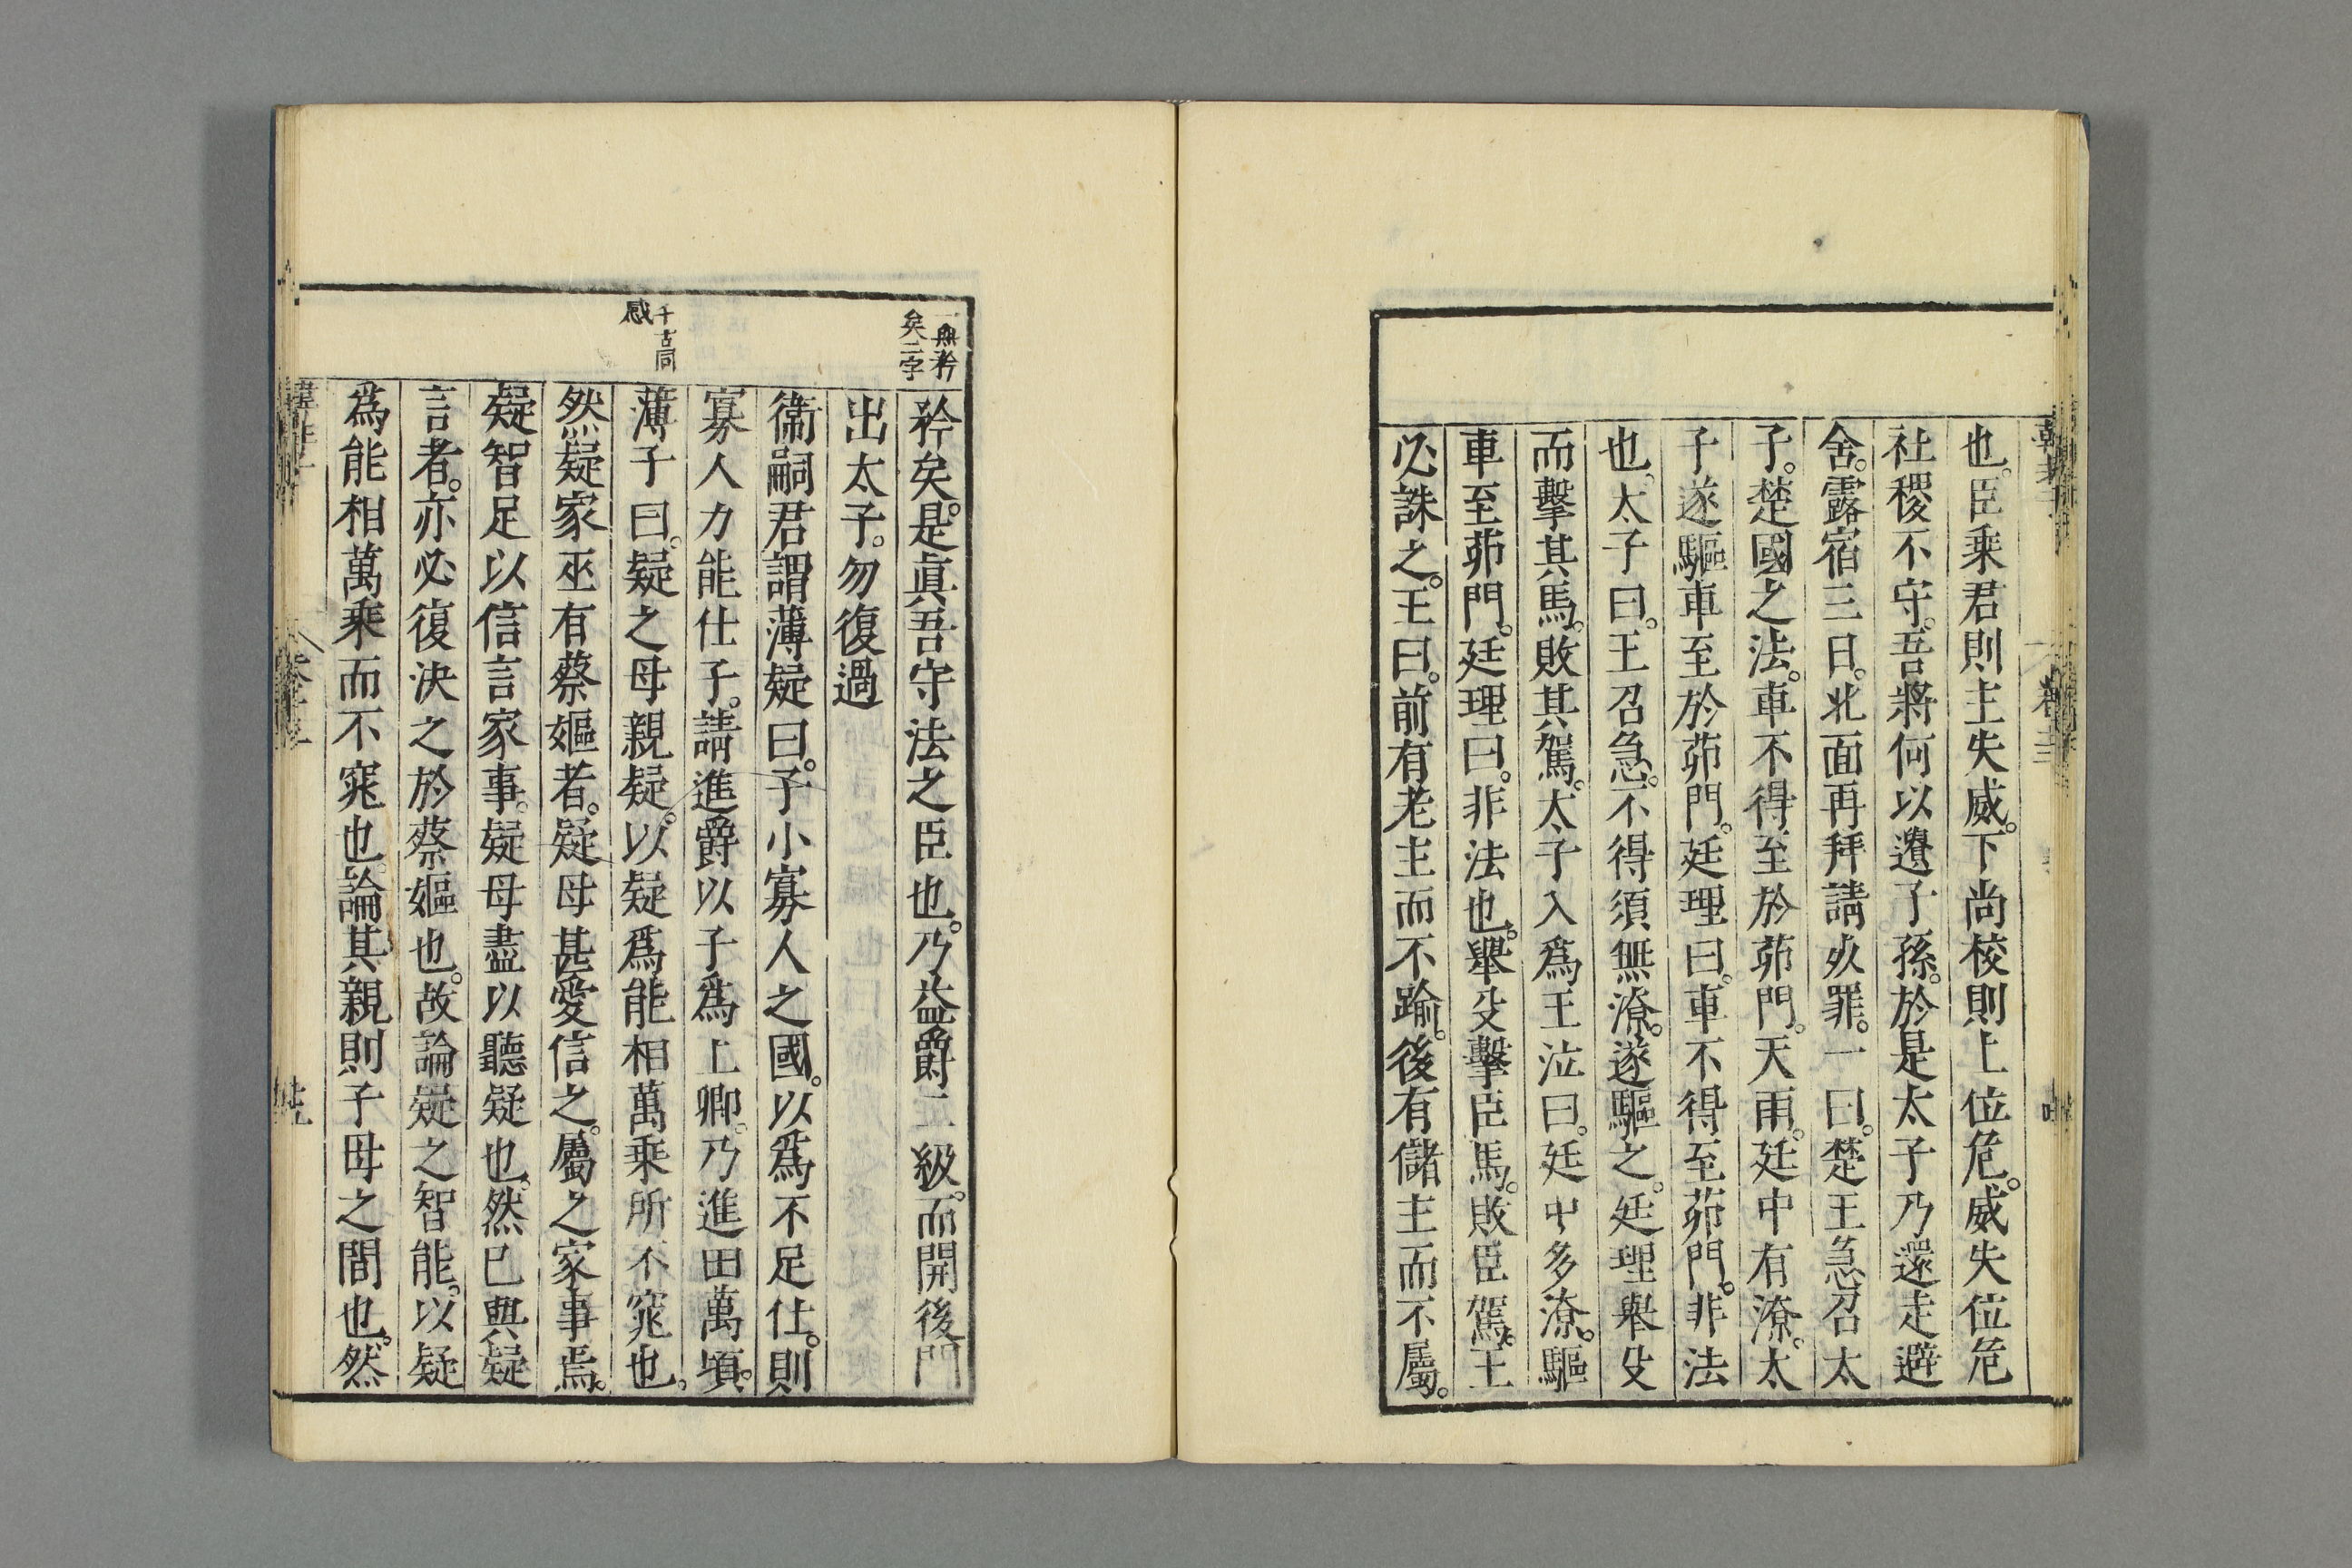 也。臣乘君則主失威。下尚校則上位危。威失位危
社稷不守。吾將何以遺子孫。於是太子乃還走避
舍。露宿三日。北面再拜請死罪。一曰。楚王急召太
子。楚國之法。車不得至於茆門。天雨。廷中有潦。太
子遂驅車至於茆門。廷理曰。車不得至茆門。非法
也。太子曰。王召急。不得須無潦。遂驅之。廷理舉殳
而擊其馬。敗其駕。太子入爲王泣曰。廷中多潦。驅
車至茆門。廷理曰。非法也。舉殳擊臣馬。敗臣駕。王
必誅之。王曰。前有老主而不踰。後有儲主而不屬。
一無矜
矣二字
矜矣。是眞吾守法之臣也。乃益爵二級。而開後門
出太子。勿復過
衞嗣君謂薄疑曰。子小寡人之國。以爲不足仕。則
寡人力能仕子。請進爵以子爲上卿。乃進田萬頃。
千古同
感
薄子曰。疑之母親疑。以疑爲能相萬乘所不窕也。
然疑家巫有蔡嫗者。疑母甚愛信之。屬之家事焉。
疑智足以信言家事。疑母盡以聽疑也。然已與疑
言者。亦必復決之於蔡嫗也。故論疑之智能。以疑
爲能相萬乘而不窕也。論其親則子母之間也。然